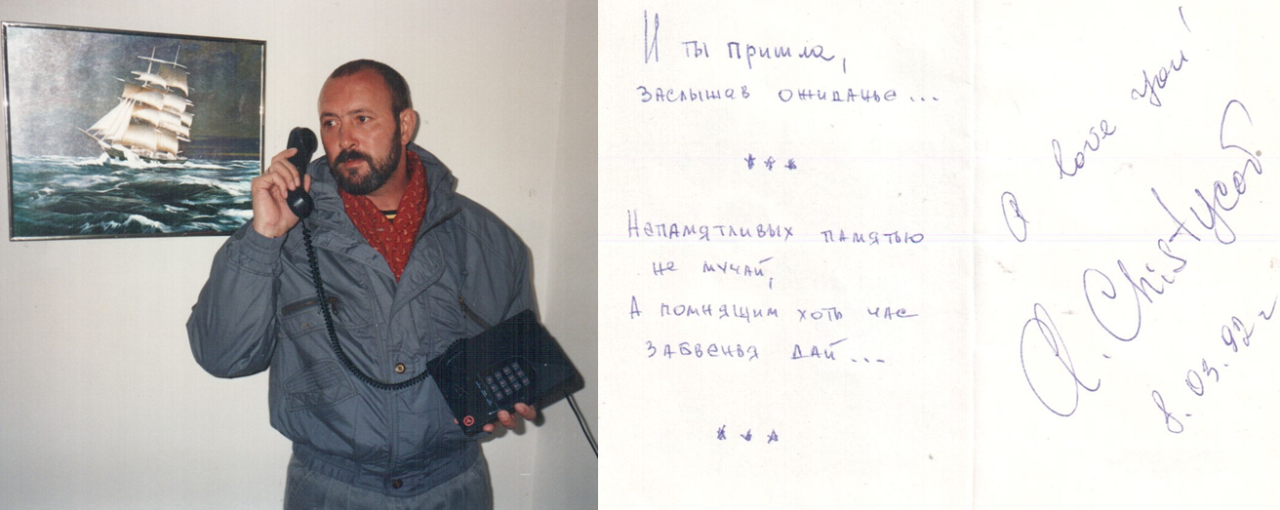 И ты пришла,
заслышав ожиданье...
***
Непамятливых памятью
не мучай,
А помнящим хоть час
забвенья дай...
***
love you!
A. Chistyсов
8.03.92 г